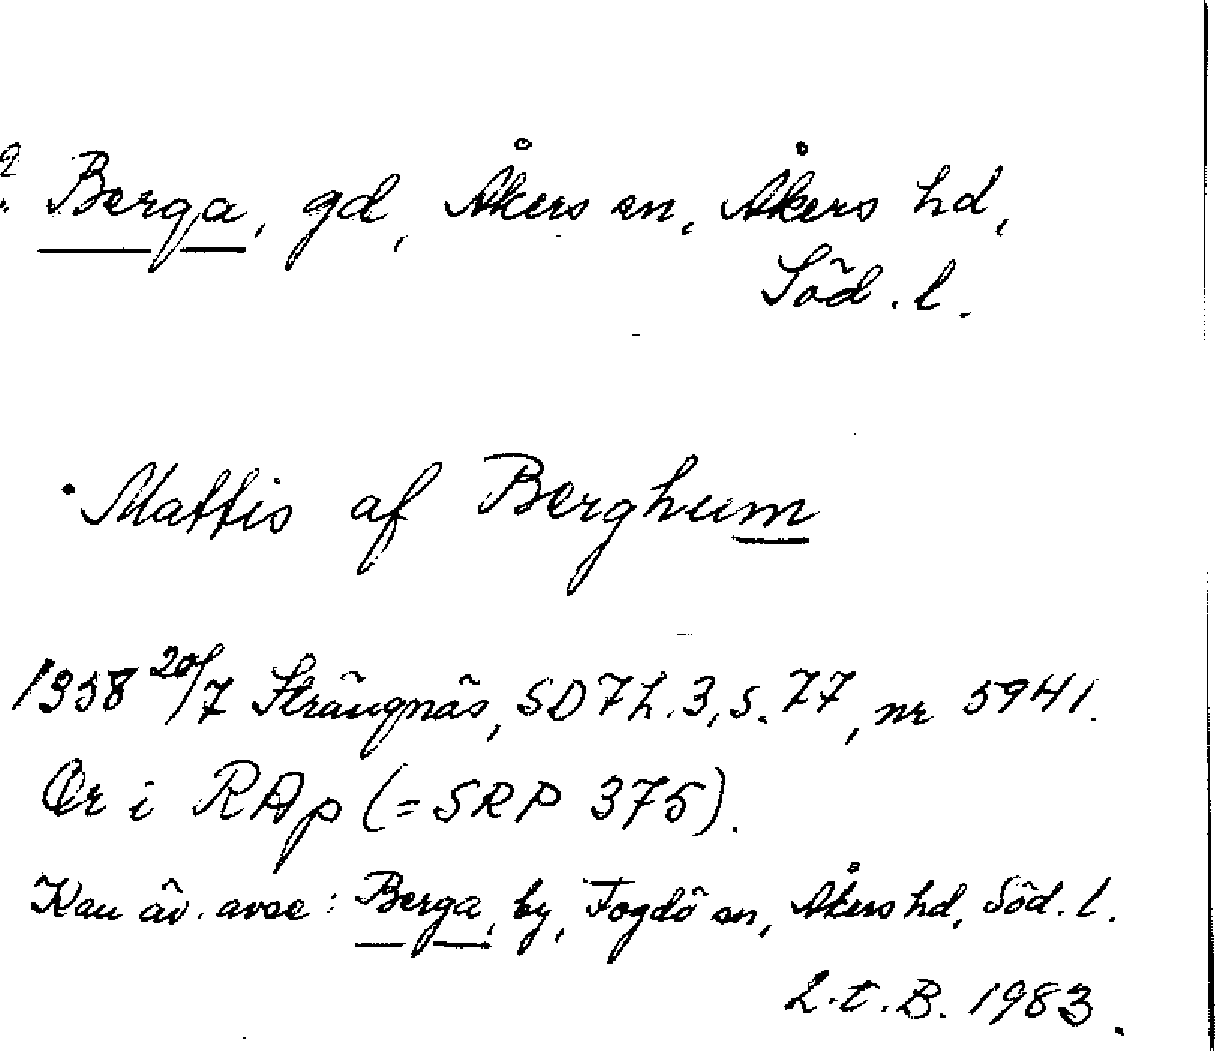 ? Berga, gd, Åkers sn, Åkers hd,
Söd. l.
Mattis af Berghum
1358 20/7 Strängnäs, SD 7 h. 3, s. 77, nr 5941.
Or i RAp (= SRP 375).
Kan äv. avse: Berga, by, Fogdö sn, Åkers hd, Söd. l.
L.t.B. 1983.